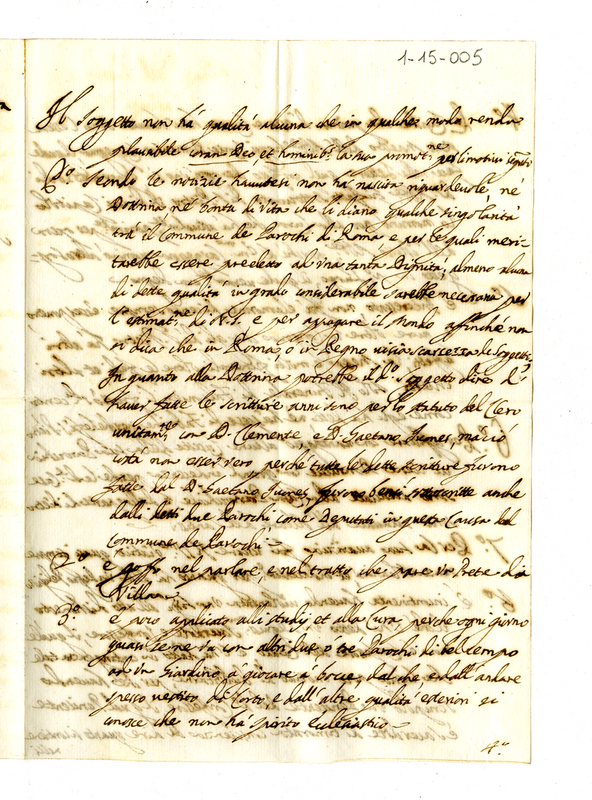 1-15-005
Il Soggetto non há qualitá alcuna che in qualche modo renda
plausibile coram Deo et hominib.s la sua promot.ne per li motivi
P.o Secondo le notizie havutesi non há nascita riguardevole né
Dottrina né bontá di vita che li diano qualche singolaritá
trá il Commune de Parochi di Roma e per le quali meri-
tarebbe essere preeletto ad una tanta Dignitá, almeno alcuna
di dette qualitá in grado considerabile sarebbe necessaria per
l'estimat.ne di N.S. e per appagare il Mondo affinché non
si dica che in Roma, ó in Regno visia scarsezza de Soggetti
In quanto alla Dottrina potrebbe il d.o Soggetto dire d'
haver fatte le scritture anni sono per lo statuto del Clero
unitam.te con D. Clemente e D. Gaetano má ció
costá non esser vero perché tutte le dette scritture furono
fatte dal D. Gaetano furono bensi sottoscritte anche
dalli detti due Parochi come Deputati in questa Causa del
Commune de Parochi -
2.o é goffo nel parlare, e nel tratto che pare un Prete di
Villa -
3.o é poco applicato alli studij et alla Cura, perche ogni giorno
quasi se ne vá con altri due o tre Parochi di bel tempo
ad un Giardino á giocare á bocce, dal che e dall'andare
spesso vestito di Corto, e dall'altre qualitá esteriori si
conosce che non há spirito Ecclesiastico -
4.o